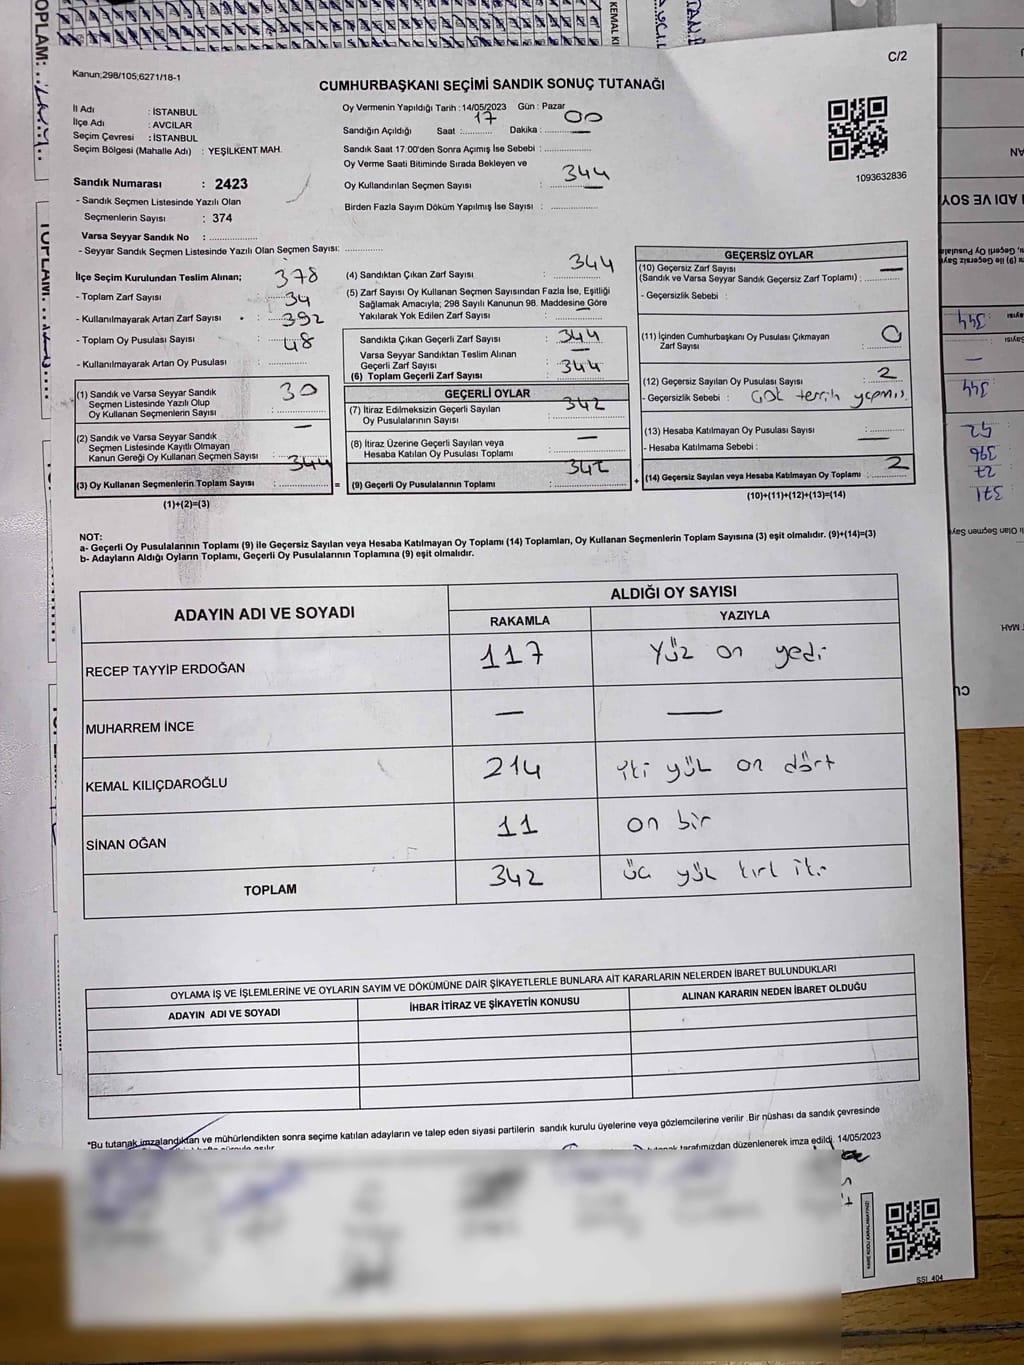 C/2
Kanun;298/105;6271/18-1
CUMHURBAŞKANI SEÇİMİ SANDIK SONUÇ TUTANAĞI
İl Adı : İSTANBUL
İlçe Adı : AVCILAR
Seçim Çevresi : İSTANBUL
Seçim Bölgesi (Mahalle Adı) : YEŞİLKENT MAH.
Oy Vermenin Yapıldığı Tarih : 14/05/2023 Gün : Pazar
Sandığın Açıldığı Saat : 17 Dakika : 00
Sandık Saat 17:00'den Sonra Açımış İse Sebebi :
Oy Verme Saati Bitiminde Sırada Bekleyen ve
Oy Kullandırılan Seçmen Sayısı : 344
Birden Fazla Sayım Döküm Yapılmış İse Sayısı :
1093632836
Sandık Numarası : 2423
- Sandık Seçmen Listesinde Yazılı Olan
Seçmenlerin Sayısı : 374
Varsa Seyyar Sandık No :
- Seyyar Sandık Seçmen Listesinde Yazılı Olan Seçmen Sayısı:
İlçe Seçim Kurulundan Teslim Alınan;
- Toplam Zarf Sayısı : 378
- Kullanılmayarak Artan Zarf Sayısı : 34
- Toplam Oy Pusulası Sayısı : 392
- Kullanılmayarak Artan Oy Pusulası : 48
(1) Sandık ve Varsa Seyyar Sandık
Seçmen Listesinde Yazılı Olup
Oy Kullanan Seçmenlerin Sayısı : 30
(2) Sandık ve Varsa Seyyar Sandık
Seçmen Listesinde Kayıtlı Olmayan
Kanun Gereği Oy Kullanan Seçmen Sayısı : —
(3) Oy Kullanan Seçmenlerin Toplam Sayısı : 344
(1)+(2)=(3)
(4) Sandıktan Çıkan Zarf Sayısı : 344
(5) Zarf Sayısı Oy Kullanan Seçmen Sayısından Fazla İse, Eşitliği
Sağlamak Amacıyla; 298 Sayılı Kanunun 98. Maddesine Göre
Yakılarak Yok Edilen Zarf Sayısı : —
Sandıkta Çıkan Geçerli Zarf Sayısı : 344
Varsa Seyyar Sandıktan Teslim Alınan
Geçerli Zarf Sayısı : —
(6) Toplam Geçerli Zarf Sayısı : 344
GEÇERLİ OYLAR
(7) İtiraz Edilmeksizin Geçerli Sayılan
Oy Pusulasının Sayısı : 342
(8) İtiraz Üzerine Geçerli Sayılan veya
Hesaba Katılan Oy Pusulası Toplamı : —
= (9) Geçerli Oy Pusulalarının Toplamı : 342
GEÇERSİZ OYLAR
(10) Geçersiz Zarf Sayısı
(Sandık ve Varsa Seyyar Sandık Geçersiz Zarf Toplamı) : —
- Geçersizlik Sebebi :
(11) İçinden Cumhurbaşkanı Oy Pusulası Çıkmayan
Zarf Sayısı : 0
(12) Geçersiz Sayılan Oy Pusulası Sayısı : 2
- Geçersizlik Sebebi : Çok tercih yapmış
(13) Hesaba Katılmayan Oy Pusulası Sayısı : —
- Hesaba Katılmama Sebebi :
+ (14) Geçersiz Sayılan veya Hesaba Katılmayan Oy Toplamı : 2
(10)+(11)+(12)+(13)=(14)
NOT:
a- Geçerli Oy Pusulalarının Toplamı (9) ile Geçersiz Sayılan veya Hesaba Katılmayan Oy Toplamı (14) Toplamları, Oy Kullanan Seçmenlerin Toplam Sayısına (3) eşit olmalıdır. (9)+(14)=(3)
b- Adayların Aldığı Oyların Toplamı, Geçerli Oy Pusulalarının Toplamına (9) eşit olmalıdır.
ADAYIN ADI VE SOYADI
ALDIĞI OY SAYISI
RAKAMLA YAZIYLA
RECEP TAYYİP ERDOĞAN 117 Yüz on yedi
MUHARREM İNCE — —
KEMAL KILIÇDAROĞLU 214 iki yüz on dört
SİNAN OĞAN 11 on bir
TOPLAM 342 üç yüz kırk iki
OYLAMA İŞ VE İŞLEMLERİNE VE OYLARIN SAYIM VE DÖKÜMÜNE DAİR ŞİKAYETLERLE BUNLARA AİT KARARLARIN NELERDEN İBARET BULUNDUKLARI
ADAYIN ADI VE SOYADI İHBAR İTİRAZ VE ŞİKAYETİN KONUSU ALINAN KARARIN NEDEN İBARET OLDUĞU
*Bu tutanak imzalandıktan ve mühürlendikten sonra seçime katılan adayların ve talep eden siyasi partilerin sandık kurulu üyelerine veya gözlemcilerine verilir .Bir nüshası da sandık çevresinde
tarafımızdan düzenlenerek imza edildi. 14/05/2023
SSI_404